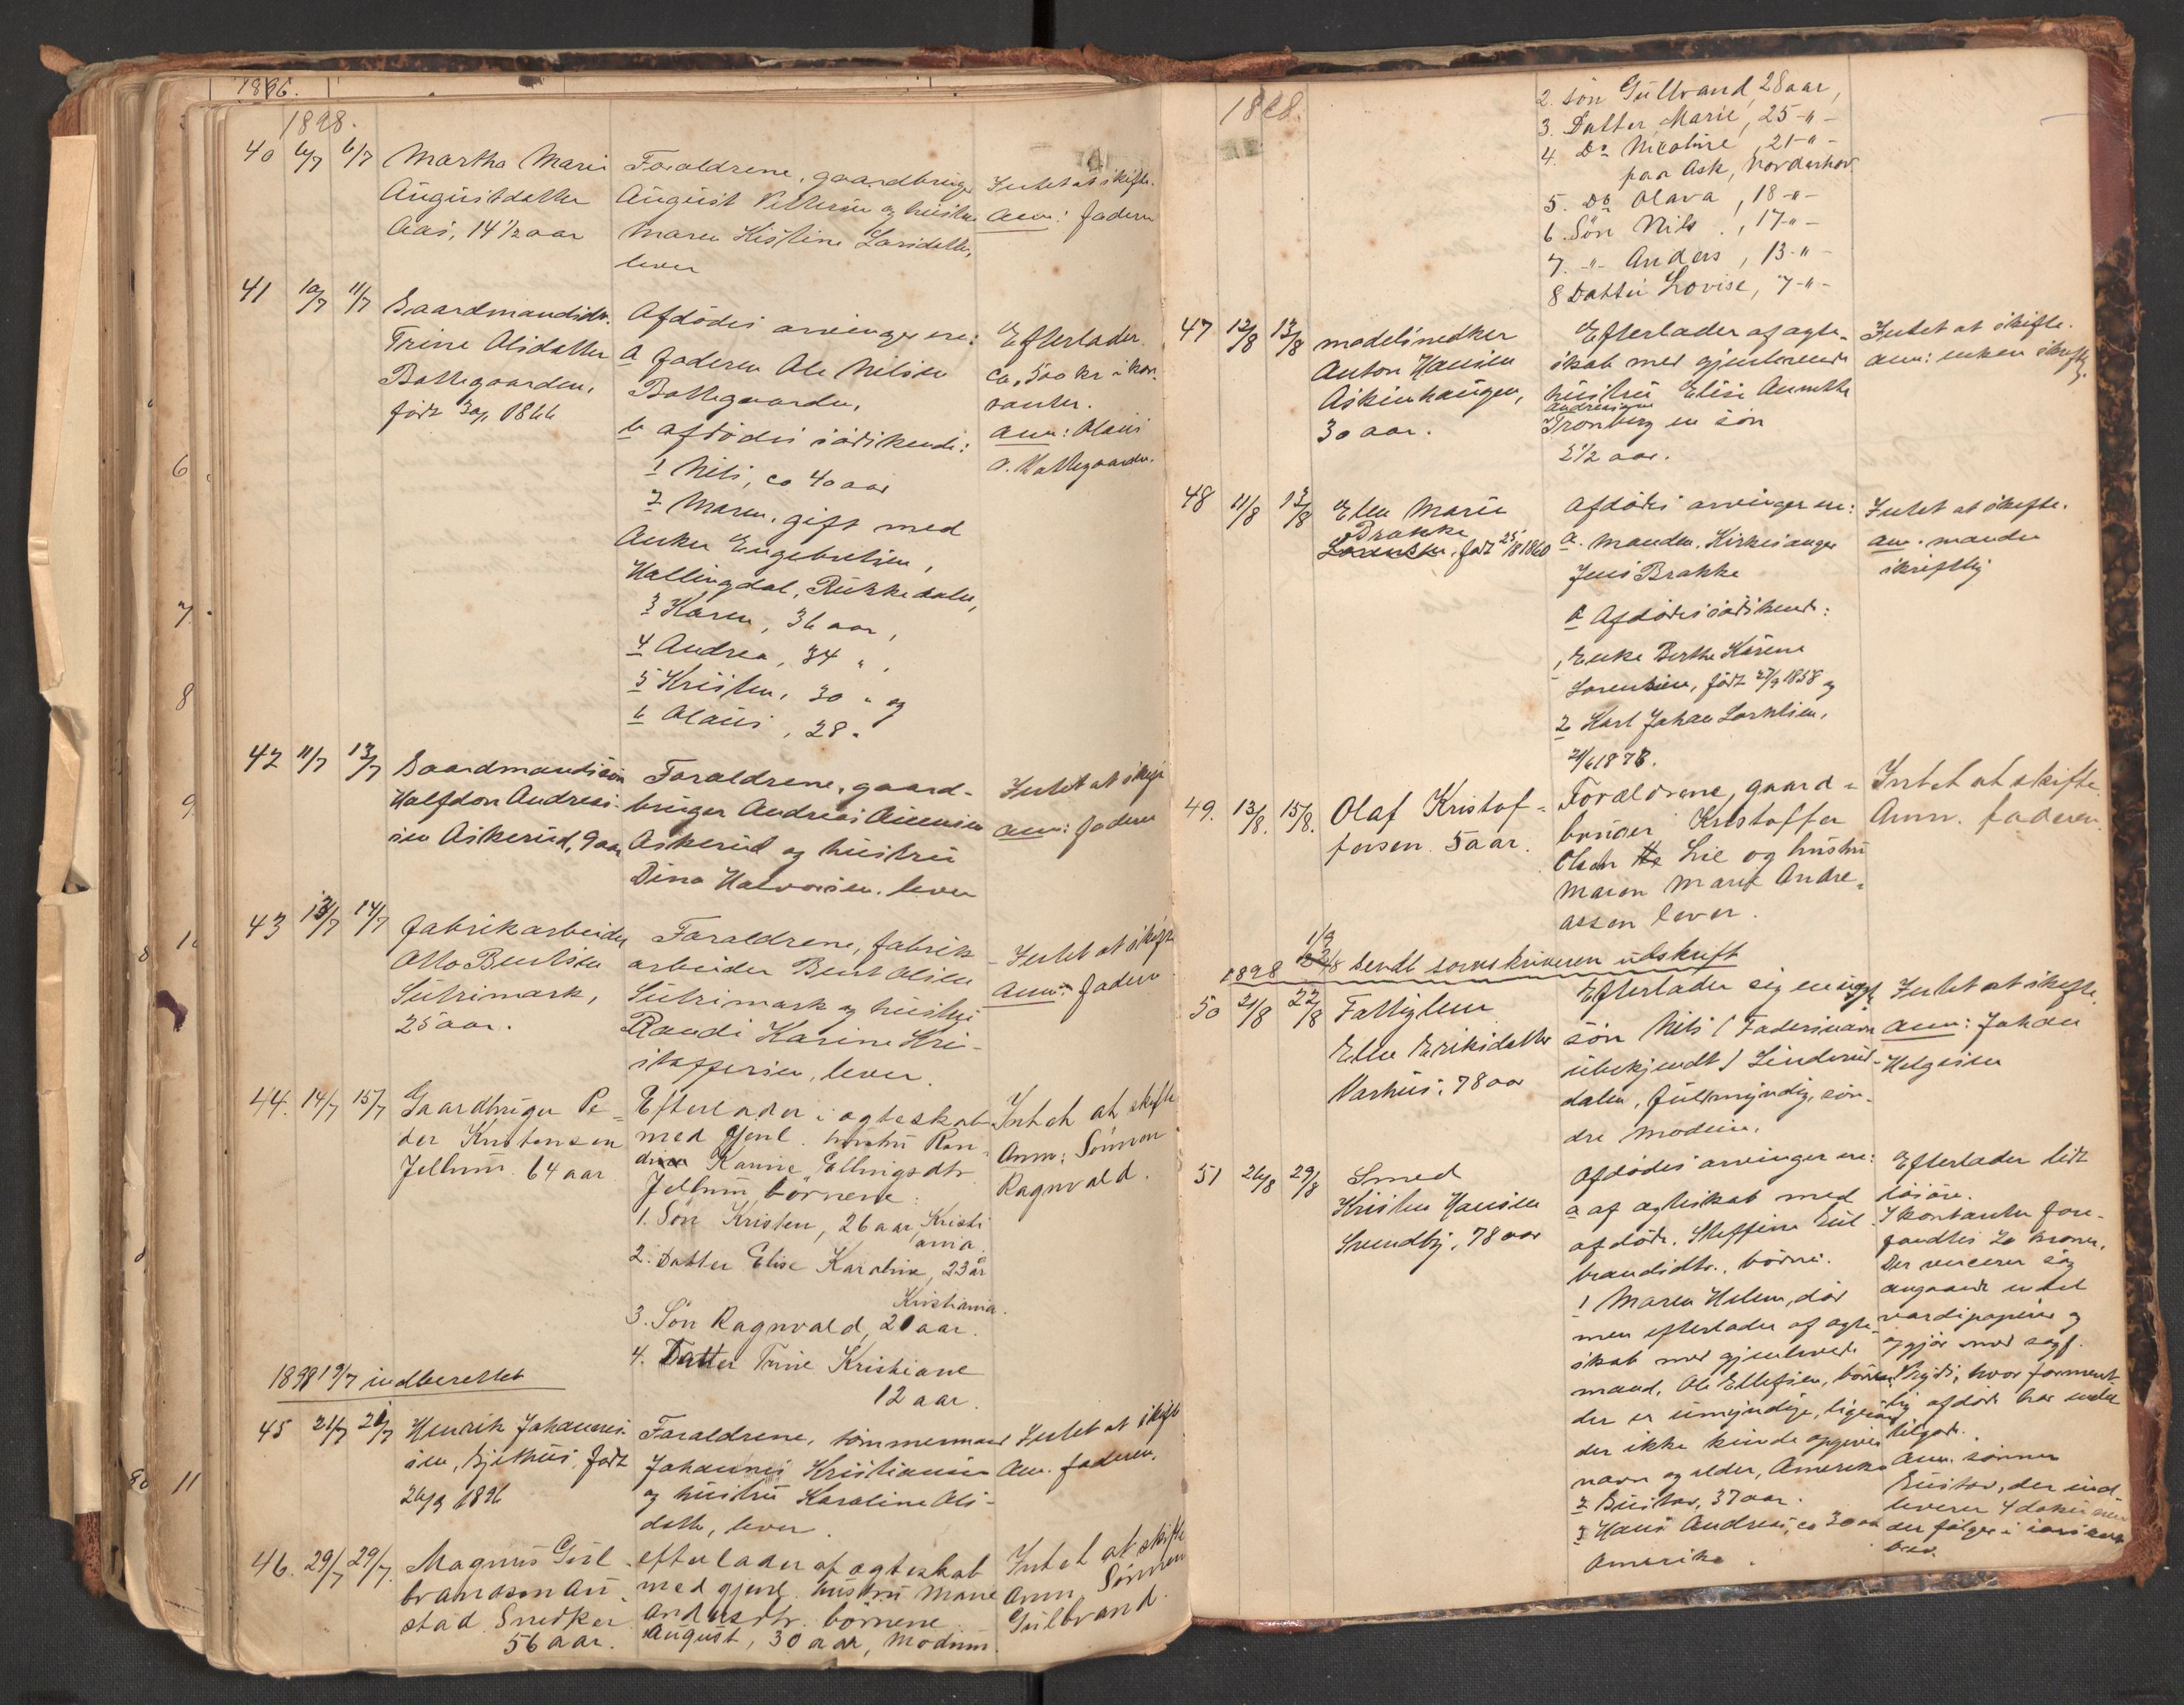 1896.
1898.
40 6/7 6/7 Martha Marie
Augustdatter
Aas, 14 1/2 aar
Forældrene, gaardbruger
August Pettersen og hustru
Maren Kistine Larsdatter,
lever
Intet at skifte.
Anm: faderen
41 10/7 11/7 Gaardmandsdtr.
Trine Olsdatter
Bottegaarden,
født 30/1 1866
Afdødes arvinger ere:
a faderen Ole Nilsen
Bottegaarden,
b afdødes sødskende:
1 Nils, ca 40 aar
2 Maren, gift med
Anker Engebretsen,
Hallingdal, Rukkedalen,
3 Karen, 36 aar,
4 Andrea, 34 " ,
5 Kristen, 30 " og
6 Olaus, 28 "
Efterlader
ca. 500 kr i kon-
tanter.
Anm: Olaus
O. Bottegaarden.
42 11/7 13/7 Gaardmandssøn
Halfdan Andreas-
sen Askerud, 9 aar
Forældrene, gaard-
bruger Andreas Amunsen
Askerud og hustru
Dina Halvorsen lever
Intet at skifte
Anm: faderen
43 13/7 14/7 Fabrikarbeider
Otto Bentsen
Sutrimark,
25 aar.
Forældrene, fabrik
arbeider Bent Olsen
Sutrimark og hustru
Randi Karine Kri-
stoffersen, lever.
Intet at skifte
Anm: faderen
44. 14/7 15/7 Gaardbruger Pe-
der Kristensen
Jellum 64 aar
Efterlader i ægteskab
med gjenl. hustru Ran-
Karine Ellingsdtr
Jellum børnene:
1. Søn Kristen, 26 aar, Kristi
ania.
2. Datter Elise Karoline, 23 år
Kristiania.
3. Søn Ragnvald, 20 aar.
4. Datter Trine Kristiane
12 aar.
Intet at skifte
Anm: Sønnen
Ragnvald.
1898 19/7 indberettet
45 21/7 21/7 Henrik Johannes-
sen, født
26/9 1896
Forældrene, tømmermand
Johannes Kristiansen
og hustru Karoline Ols-
datter, lever.
Intet at skifte
Anm. faderen.
46. 29/7 29/7. Magnus Gul-
brandsen Au-
stad Snedker
56 aar.
efterlader af ægteskab
med gjenl. hustru Marie
Andersdtr. børnene
August, 30 aar, Modum.
Intet at skifte
Anm. Sønnen
Gulbrand.
1898.
2. søn Gulbrand, 28 aar,
3. Datter, Marie, 25 -"-
4. Do Nicoline, 21 -"-
paa Ask, Norderhov.
5. Do Olava, 18 -"-
6. Søn Nils, 17 -"-
7. -"- Anders, 13 -"-
8 Datter Lovise, 7 -"-
47 12/8 13/8 modelsnedker
Anton Hansen
Askinhaugen,
30 aar.
Efterlader af ægte-
skab med gjenlevende
hustru Elise Annette
Andreasen
Tronberg en søn
2 1/2 aar.
Intet at skifte.
Anm: enken skriftlig.
48 11/8 13/8 Ellen Marie
Brakke
Lorentsen, født 25/8 1860
Afdødes arvinger ere:
a. manden, Kirkesanger
Jens Brakke
b Afdødes sødskende:
1 Enke Berthe Karine
Lorentsen, født 27/9 1858 og
2 Karl Johan Lorentsen,
21/6 1878.
Intet at skifte.
Anm. manden
skriftlig
49. 13/8. 15/8. Olaf Kristof-
fersen. 5 aar.
Forældrene, gaard-
bruger Kristoffer
Olsen Lie og hustru
Maren Marie Andre-
assen lever.
Intet at skifte
Anm. faderen.
1898 1/9 sendt sorenskriveren udskrift
50 21/8 22/8 Fattiglem
Ellen Eriksdatter
Varhus, 78 aar
Efterlader sig en uægte
søn Nils (Faderens navn
ubekjendt) Linderud-
dalen, fuldmyndig, søn-
dre Modum.
Intet at skifte.
Anm: Johan
Helgesen
51 26/8 29/8 Smed
Kristen Hansen
Svendby, 78 aar
Afdødes arvinger ere:
a af ægteskab med
afdøde Steffine Gul-
brandsdtr., børn:
1 Maren Helene, død
men efterlader af ægte-
skab med gjenlevende
mand, Ole Ellefsen, børn
der er umyndige, ligesom
der ikke kunde opgives
navn og alder, Amerika
2 Gustav, 37 aar.
3 Hans Andreas, ca 30 aar
Amerika.
Efterlader lidt
løsøre.
I kontanter fore-
fandtes 20 kroner.
Der versere sag
angaaende endel
værdipapirer og
opgjør med sagf.
Thrygdi, hvor forment-
lig afdøde har endel
tilgode.
Anm. sønnen
Gustav, der ind-
leverer 4 doku
der følger i særskilt
brev.